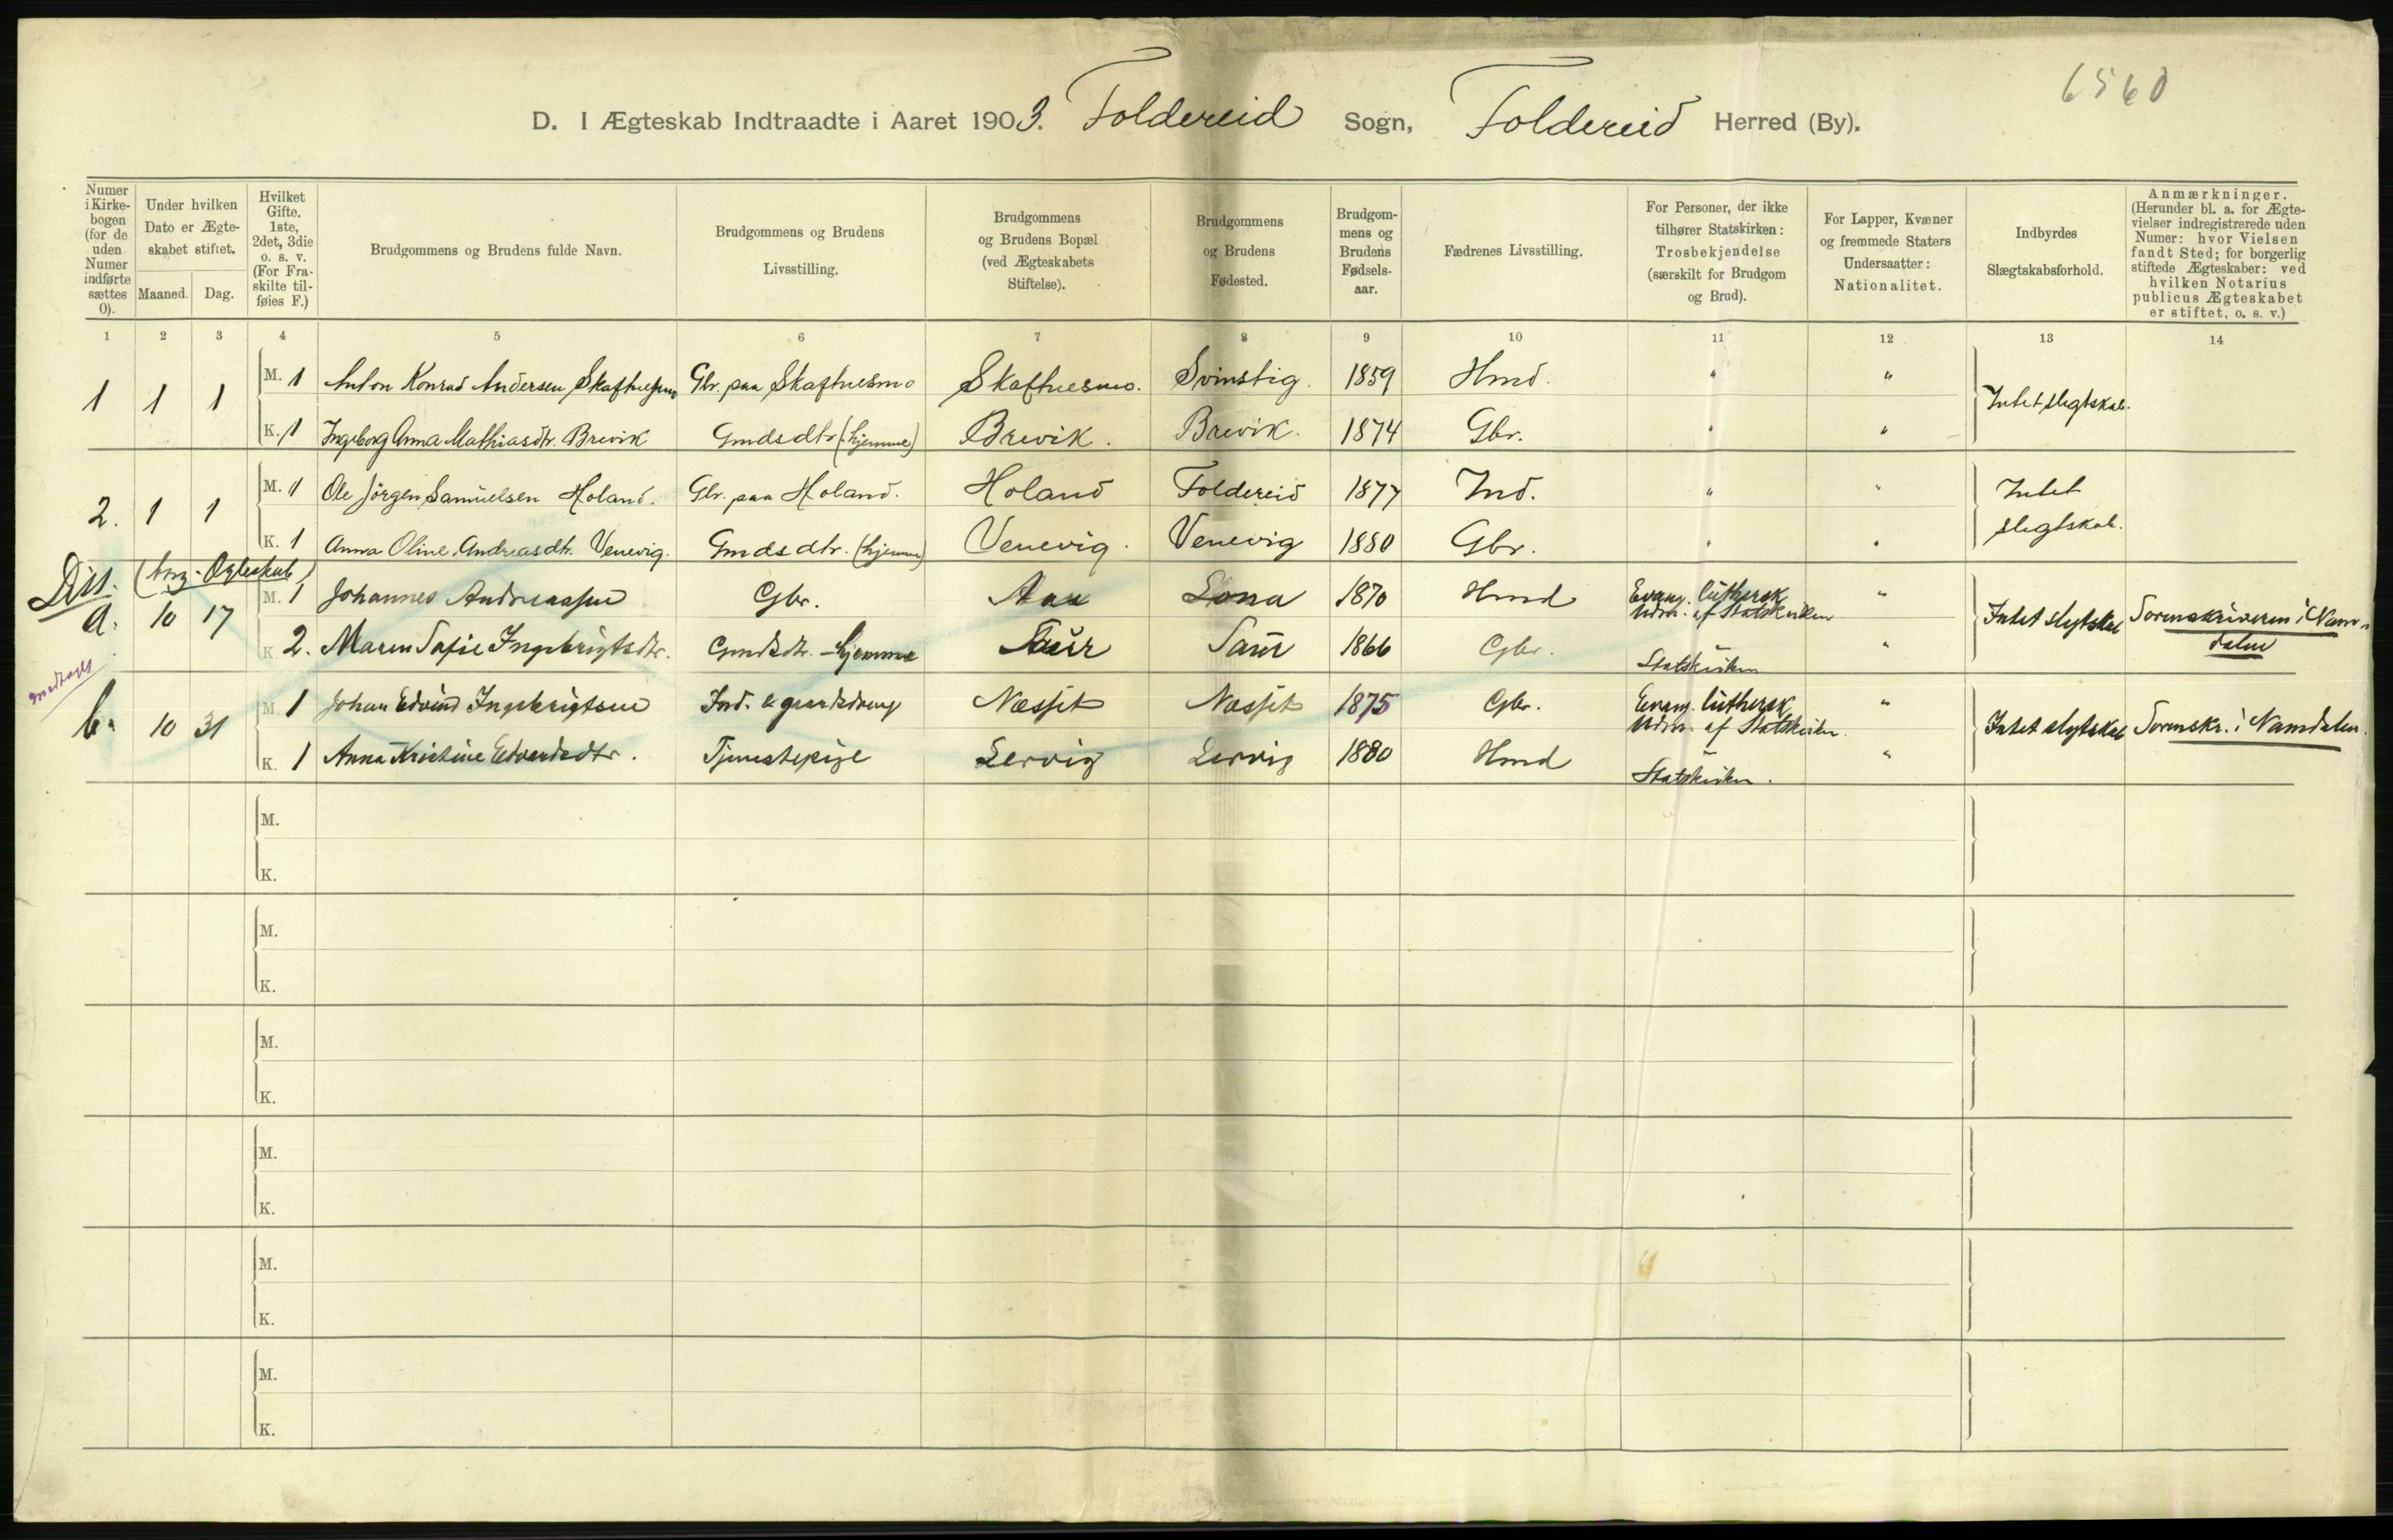 6560
D. I Ægteskab Indtraadte i Aaret 1903. Foldereid Sogn, Foldereid Herred (By).
Numer i Kirkebogen (for de uden Numer indførte sættes 0).
Under hvilken Dato er Ægteskabet stiftet.
Maaned. Dag.
Hvilket Gifte. 1ste, 2det, 3die o. s. v. (For Fraskilte tilføies F.)
Brudgommens og Brudens fulde Navn.
Brudgommens og Brudens Livsstilling.
Brudgommens og Brudens Bopæl (ved Ægteskabets Stiftelse).
Brudgommens og Brudens Fødested.
Brudgommens og Brudens Fødselsaar.
Fædrenes Livsstilling.
For Personer, der ikke tilhører Statskirken: Trosbekjendelse (særskilt for Brudgom og Brud).
For Lapper, Kvæner og fremmede Staters Undersaatter: Nationalitet.
Indbyrdes Slægtskabsforhold.
Anmærkninger. (Herunder bl. a. for Ægtevielser indregistrerede uden Numer: hvor Vielsen fandt Sted; for borgerlig stiftede Ægteskaber: ved hvilken Notarius publicus Ægteskabet er stiftet, o. s. v.)
1 2 3 4 5 6 7 8 9 10 11 12 13 14
1 1 1 M. 1 Anton Konrad Andersen Skafthuesmo Gbr. paa Skafthuesmo Skafthuesmo. Svinstig. 1859 Hmd. " " Intet slegtskab.
K. 1 Ingeborg Anna Mathiasdtr. Brevik Gmdsdtr (hjemme) Brevik. Brevik. 1874 Gbr. " "
2. 1 1 M. 1 Ole Jörgen Samuelsen Holand. Gbr. paa Holand. Holand Foldereid 1877 Ind. " " Intet slegtskab.
K. 1 Anna Oline Andreasdtr. Venevig. Gmdsdtr. (hjemme) Venevig. Venevig 1880 Gbr. " "
Diss. Ægteskab)
a. 10 17 M. 1 Johannes Andreassen Gbr. Aar Lona 1870 Hmd Evang. luthersk Udm. af Statskirken " Intet slegtskab Sorenskriveren i Namdalen
K. 2. Maren Sofie Ingebrigtsdtr. Gmdsdtr. hjemme Saur Saur 1866 Gbr. Statskirken "
medtages
b. 10 31 M. 1 Johan Edvind Ingebrigtsen Ind. & gaardsdreng Næsset Næsset 1875 Gbr. Evang. luthersk Udm. af Statskirken. " Intet slegtskab Sorenskr. i Namdalen.
K. 1 Anna Kristine Edvardsdtr. Tjenestepige Lervig Lervig 1880 Hmd Statskirken. "
M.
K.
M.
K.
M.
K.
M.
K.
M.
K.
M.
K.